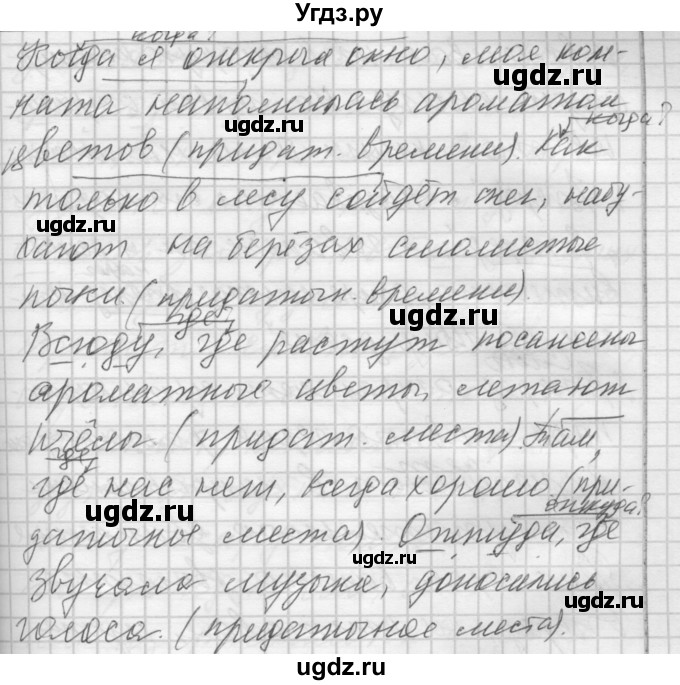 Угдз.ру
когда?
Когда я открыл окно, моя ком-
ната наполнилась ароматом
когда?
цветов (придат. времени). Как
только в лесу сойдёт снег, набу-
хают на берёзах смолистые
почки. (придаточн. времени).
где?
Всюду, где растут посажены
ароматные цветы, летают
пчёлы. (придат. места). Там,
где?
где нас нет, всегда хорошо (при-
откуда?
даточное места). Оттуда, где
звучала музыка, доносились
голоса. (придаточное места).
ugdz.ru
ugdz.ru
ugdz.ru
ugdz.ru
ugdz.ru
ugdz.ru
ugdz.ru
ugdz.ru
ugdz.ru
ugdz.ru